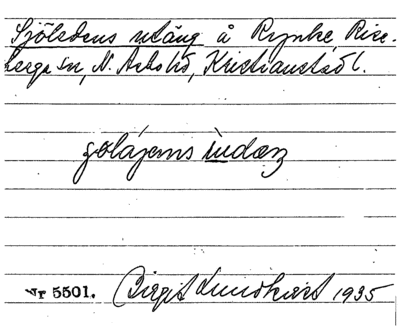 Sjölsdens utäng å Rynke Rise-
berga sn, N. Åsbo hd, Kristianstads l.
golájems ìndæŋ
Nr 5501. Birgit Lundkvist 1935